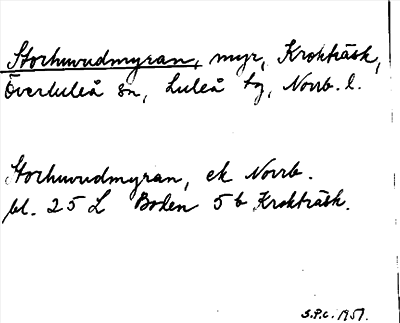 Storhuvudmyran, myr, Krokträsk,
Överluleå sn, Luleå tg, Norrb. l.
Storhuvudmyran, ek Norrb.
bl. 25 L Boden 5 b Krokträsk.
S.P.C. 1951.